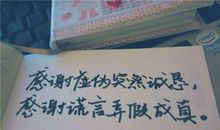 感谢虚伪突然诚恳，
感谢谎言弄做成真。